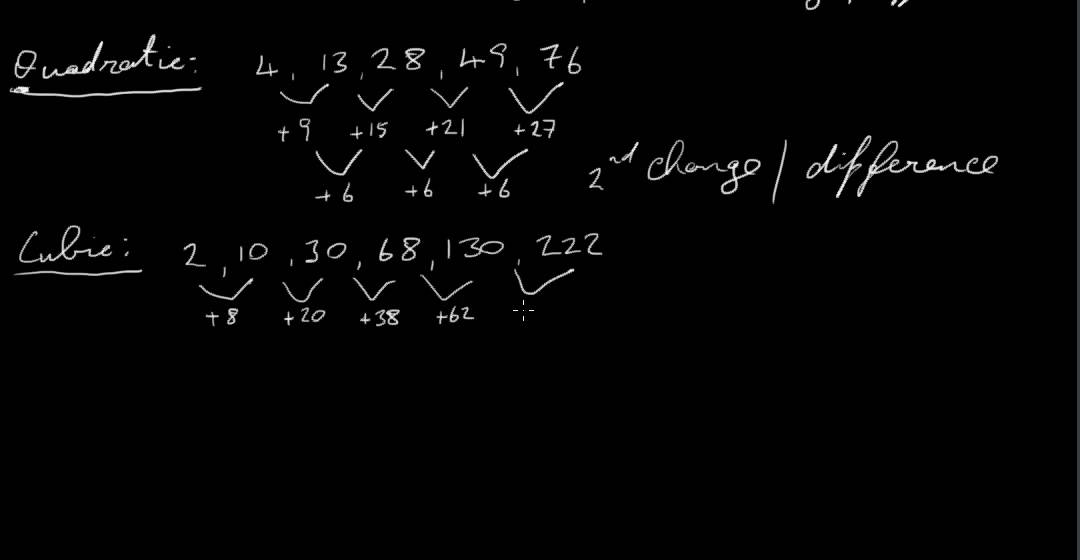 Quadratic: 4, 13, 28, 49, 76
+9 +15 +21 +27
+6 +6 +6 2nd change / difference
Cubic: 2, 10, 30, 68, 130, 222
+8 +20 +38 +62